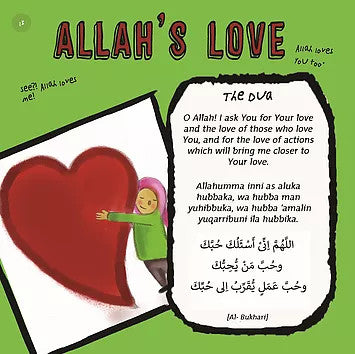 ALLAH'S LOVE
see?! Allah loves
me!
Allah loves
YOU too.
The Dua
O Allah! I ask You for Your love
and the love of those who love
You, and for the love of actions
which will bring me closer to
Your love.
Allahumma inni as aluka
hubbaka, wa hubba man
yuhibbuka, wa hubba 'amalin
yuqarribuni ila hubbika.
اللَّهُمَّ اِنِّىْ اَسْئَلُكَ حُبَّكَ
وحُبَّ مَنْ يُّحِبُّكَ
وحُبَّ عَمَلٍ يُّقَرِّبُ اِلى حُبِّكَ
[Al- Bukhari]